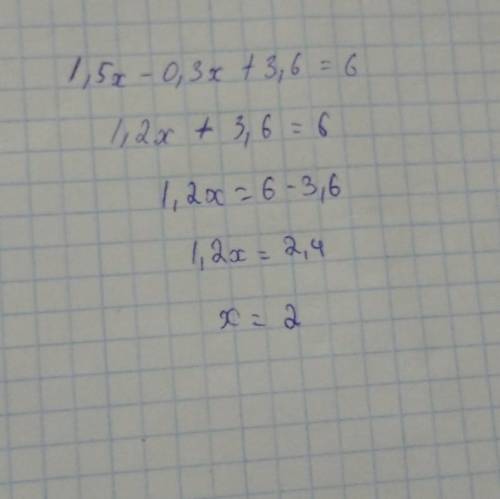 1,5x - 0,3x + 3,6 = 6
1,2x + 3,6 = 6
1,2x = 6 - 3,6
1,2x = 2,4
x = 2